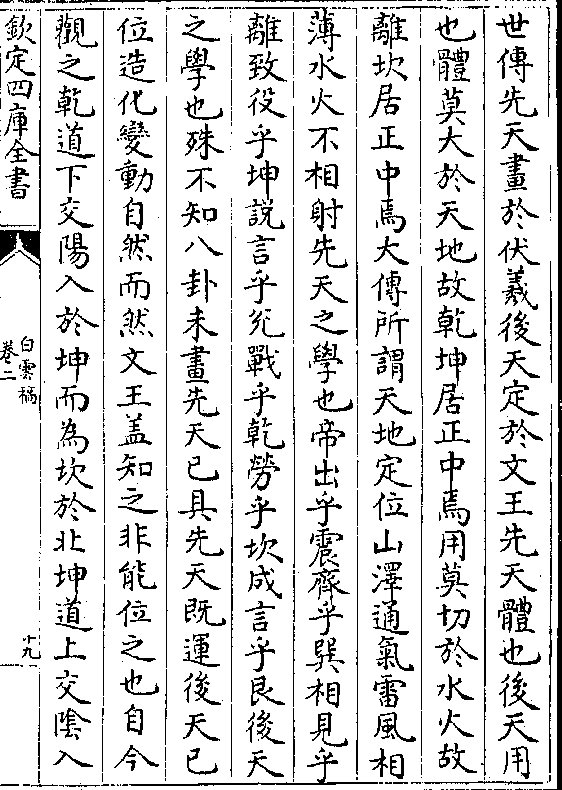 世傳先天畫於伏羲後天定於文王先天體也後天用
也體莫大於天地故乾坤居正中焉用莫切於水火故
離坎居正中焉大傳所謂天地定位山澤通氣雷風相
薄水火不相射先天之學也帝出乎震齊乎巽相見乎
離致役乎坤説言乎兊戰乎乾勞乎坎成言乎艮後天
之學也殊不知八卦未畫先天已具先天既運後天已
位造化變動自然而然文王盖知之非能位之也自今
觀之乾道下交陽入於坤而為坎於北坤道上交隂入
欽定四庫全書
白雲稿
卷二
十九